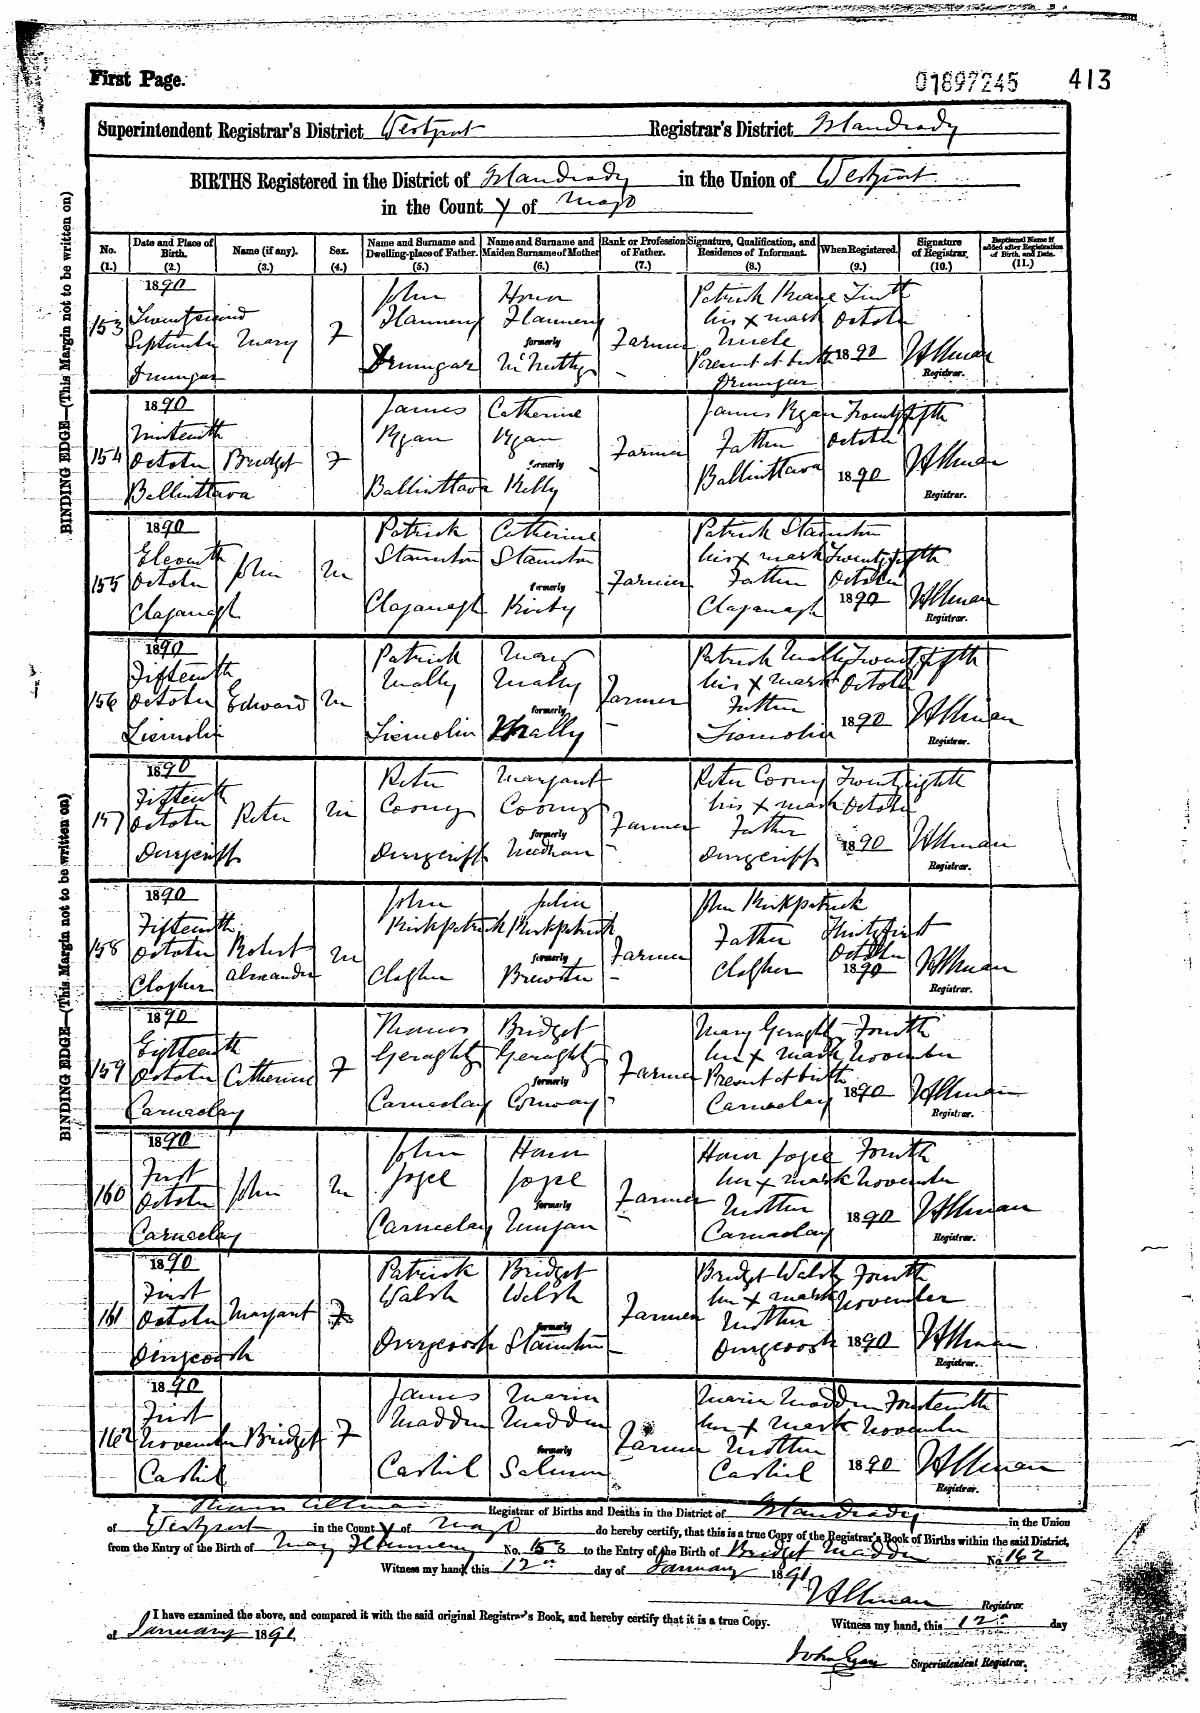 First Page.
01897245 413
Superintendent Registrar's District Westport Registrar's District Islandeady
BIRTHS Registered in the District of Islandeady in the Union of Westport
in the County of Mayo
No. Date and Place of Birth. Name (if any). Sex. Name and Surname and Dwelling-place of Father. Name and Surname and Maiden Surname of Mother Rank or Profession of Father. Signature, Qualification, and Residence of Informant. When Registered. Signature of Registrar. Baptismal Name if added after Registration of Birth, and Date.
(1.) (2.) (3.) (4.) (5.) (6.) (7.) (8.) (9.) (10.) (11.)
BINDING EDGE—(This Margin not to be written on)
1890 John Honor Patrick Keane Tenth
153 Twentysecond Flannery Flannery his x mark October
September Mary F formerly Farmer Uncle
Drumgar Drumgar McNulty Present at birth 1890 TAllman
Drumgar Registrar.
1890 James Catherine James Ryan Twentyfifth
154 Nineteenth Ryan Ryan Father October
October Bridget F formerly Farmer TAllman
Ballinttava Ballinttava Kelly Ballinttava 1890 Registrar.
1890 Patrick Catherine Patrick Staunton
155 Eleventh John M Staunton Staunton his x mark Twentyfifth
October formerly Farmer Father October
Claganagh Claganagh Kirby Claganagh 1890 TAllman
Registrar.
1890 Patrick Mary Patrick Mally Twentyfifth
156 Fifteenth Mally Mally his x mark October
October Edward M formerly Farmer Father
1890 TAllman
Registrar.
BINDING EDGE—(This Margin not to be written on)
1890 Peter Margaret Peter Coony Twentyeighth
157 Fifteenth Peter M Coony Coony his x mark October
October formerly Farmer Father
Derrygriff Derrygriff Needham Derrygriff 1890 TAllman
Registrar.
1890 John Julia John Kirkpatrick
158 Fifteenth Kirkpatrick Kirkpatrick Father Thirtyfirst
October Robert M formerly Farmer October
Clogher Alexander Clogher Brewster Clogher 1890 TAllman
Registrar.
1890 Thomas Bridget Mary Geraghty Fourth
159 Eighteenth Geraghty Geraghty her x mark November
October Catherine F formerly Farmer Present at birth
Carnaclay Carnaclay Conway Carnaclay 1890 TAllman
Registrar.
1890 John Honor Honor Joyce Fourth
160 First John M Joyce Joyce her x mark November
October formerly Farmer Mother
Carnaclay Carnaclay Mungan Carnaclay 1890 TAllman
Registrar.
1890 Patrick Bridget Bridget Walsh Fourth
161 First Walsh Walsh her x mark November
October Margaret F formerly Farmer Mother
Derrycoosh Derrycoosh Staunton Derrycoosh 1890 TAllman
Registrar.
1890 James Maria Maria Madden Fourteenth
162 First Madden Madden her x mark November
November Bridget F formerly Farmer Mother
Cashil Cashil Salmon Cashil 1890 TAllman
Registrar.
I Thomas Allman Registrar of Births and Deaths in the District of Islandeady in the Union
of Westport in the County of Mayo do hereby certify, that this is a true Copy of the Registrar's Book of Births within the said District,
from the Entry of the Birth of Mary Flannery No. 153 to the Entry of the Birth of Bridget Madden No 162
Witness my hand this 12th day of January 1891
TAllman Registrar.
I have examined the above, and compared it with the said original Registrar's Book, and hereby certify that it is a true Copy. Witness my hand, this 12th day
of January 1891
John Egan Superintendent Registrar.